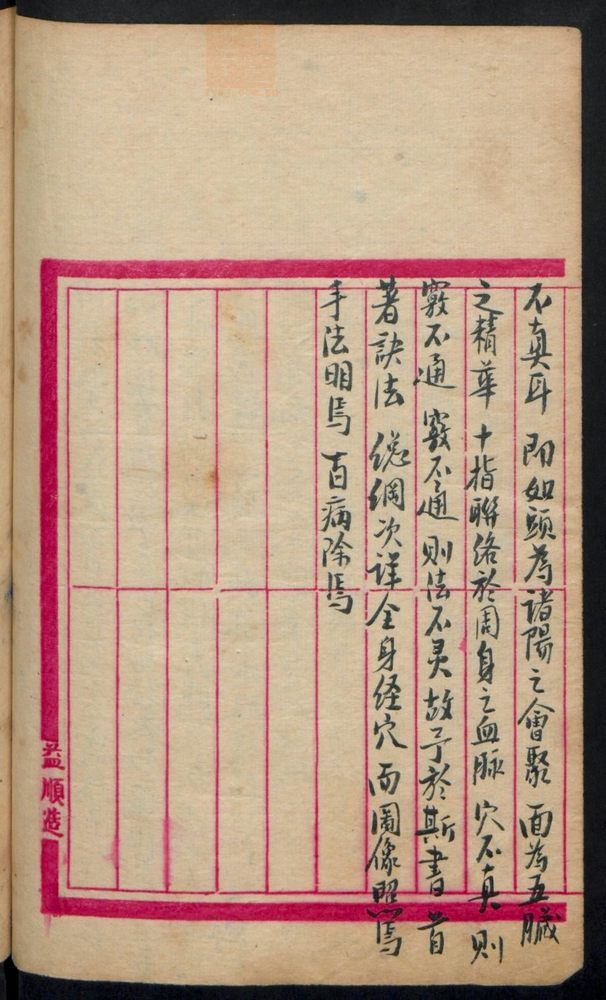 不真耳 即如頭為諸陽之會聚 面為五臟
之精華 十指聯絡於周身之血脉 穴不真則
竅不通 竅不通 則法不灵 故予於斯書首
著訣法 總綱次詳全身経穴 而圖像照焉
手法明焉 百病除焉
益順造